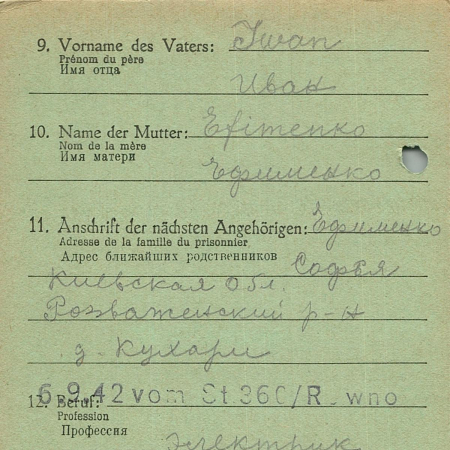 9. Vorname des Vaters: Iwan
Prénom du père
Имя отца
Иван
10. Name der Mutter: Efimenko
Nom de la mère
Имя матери
Ефименко
11. Anschrift der nächsten Angehörigen: Ефименко
Adresse de la famille du prisonnier
Адрес ближайших родственников Софья
Киевская обл.
Розваженский р-н
д. Кухари
6.9.42 vom St.360/Rowno
12. Beruf:
Profession
Профессия
электрик